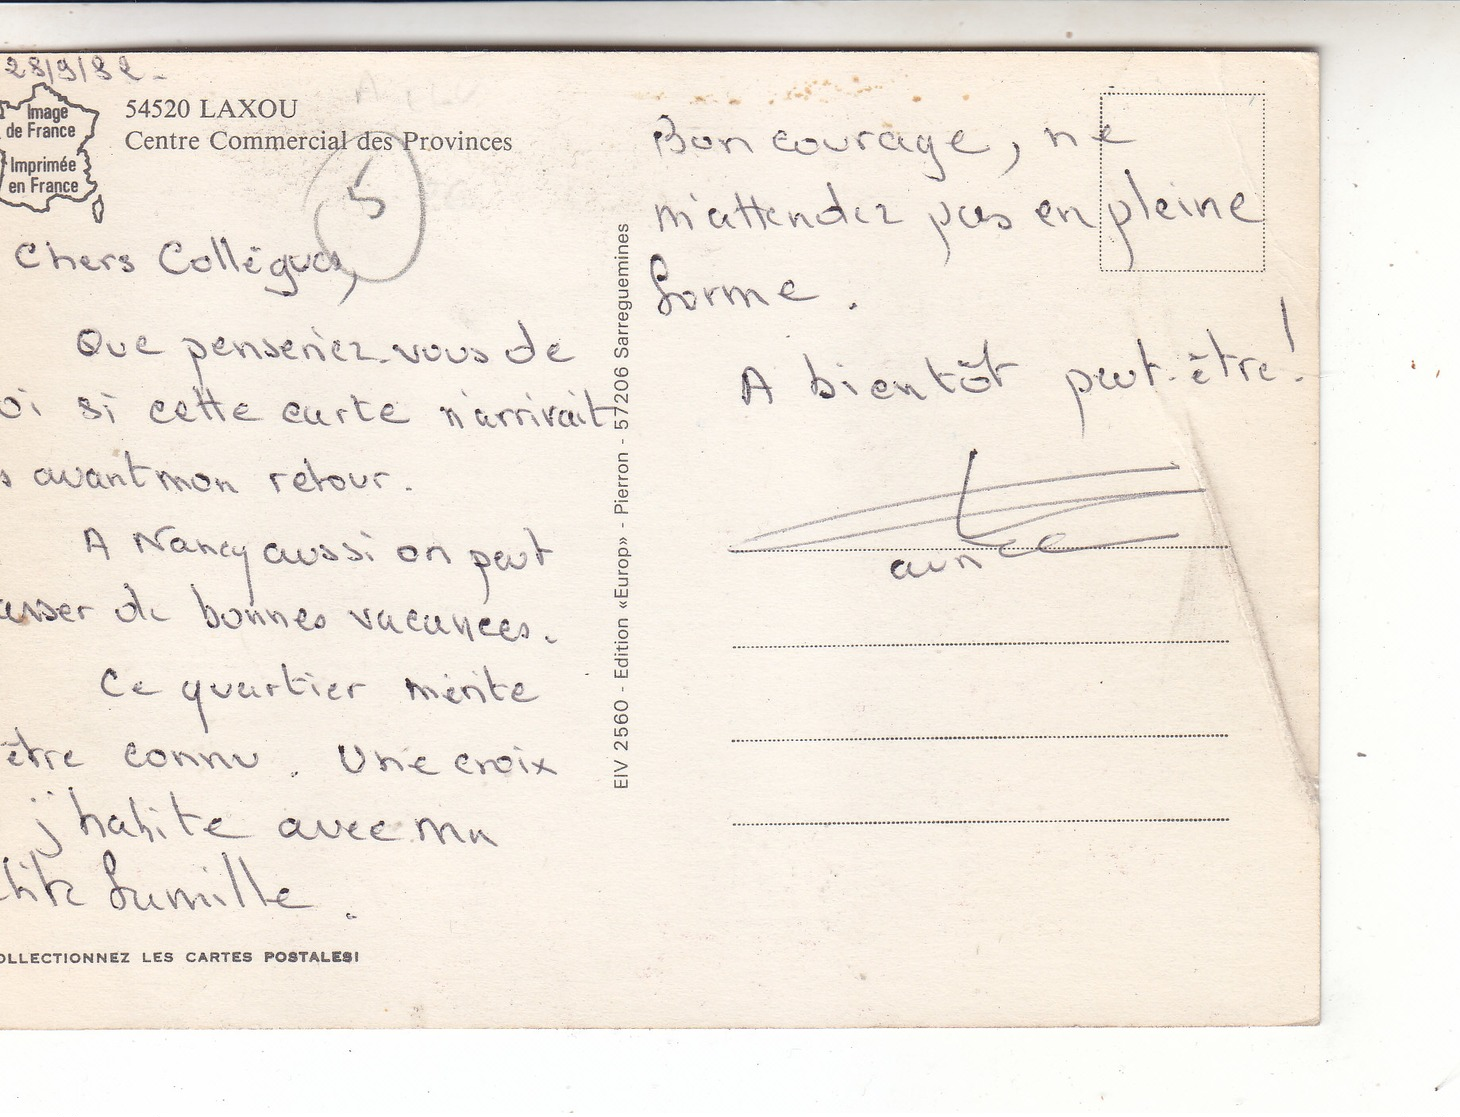 28/9/82-
Image
de France
Imprimée
en France
54520 LAXOU
Centre Commercial des Provinces
5
Chers Collègues,
Que penseriez-vous de
oi si cette carte n'arrivait
s avant mon retour.
A Nancy aussi on peut
asser de bonnes vacances.
Ce quartier mérite
être connu. Une croix
j'habite avec ma
tite famille.
OLLECTIONNEZ LES CARTES POSTALES!
EIV 2560 - Edition «Europ» - Pierron - 57206 Sarreguemines
Bon courage, ne
m'attendez pas en pleine
forme.
A bientôt peut-être!